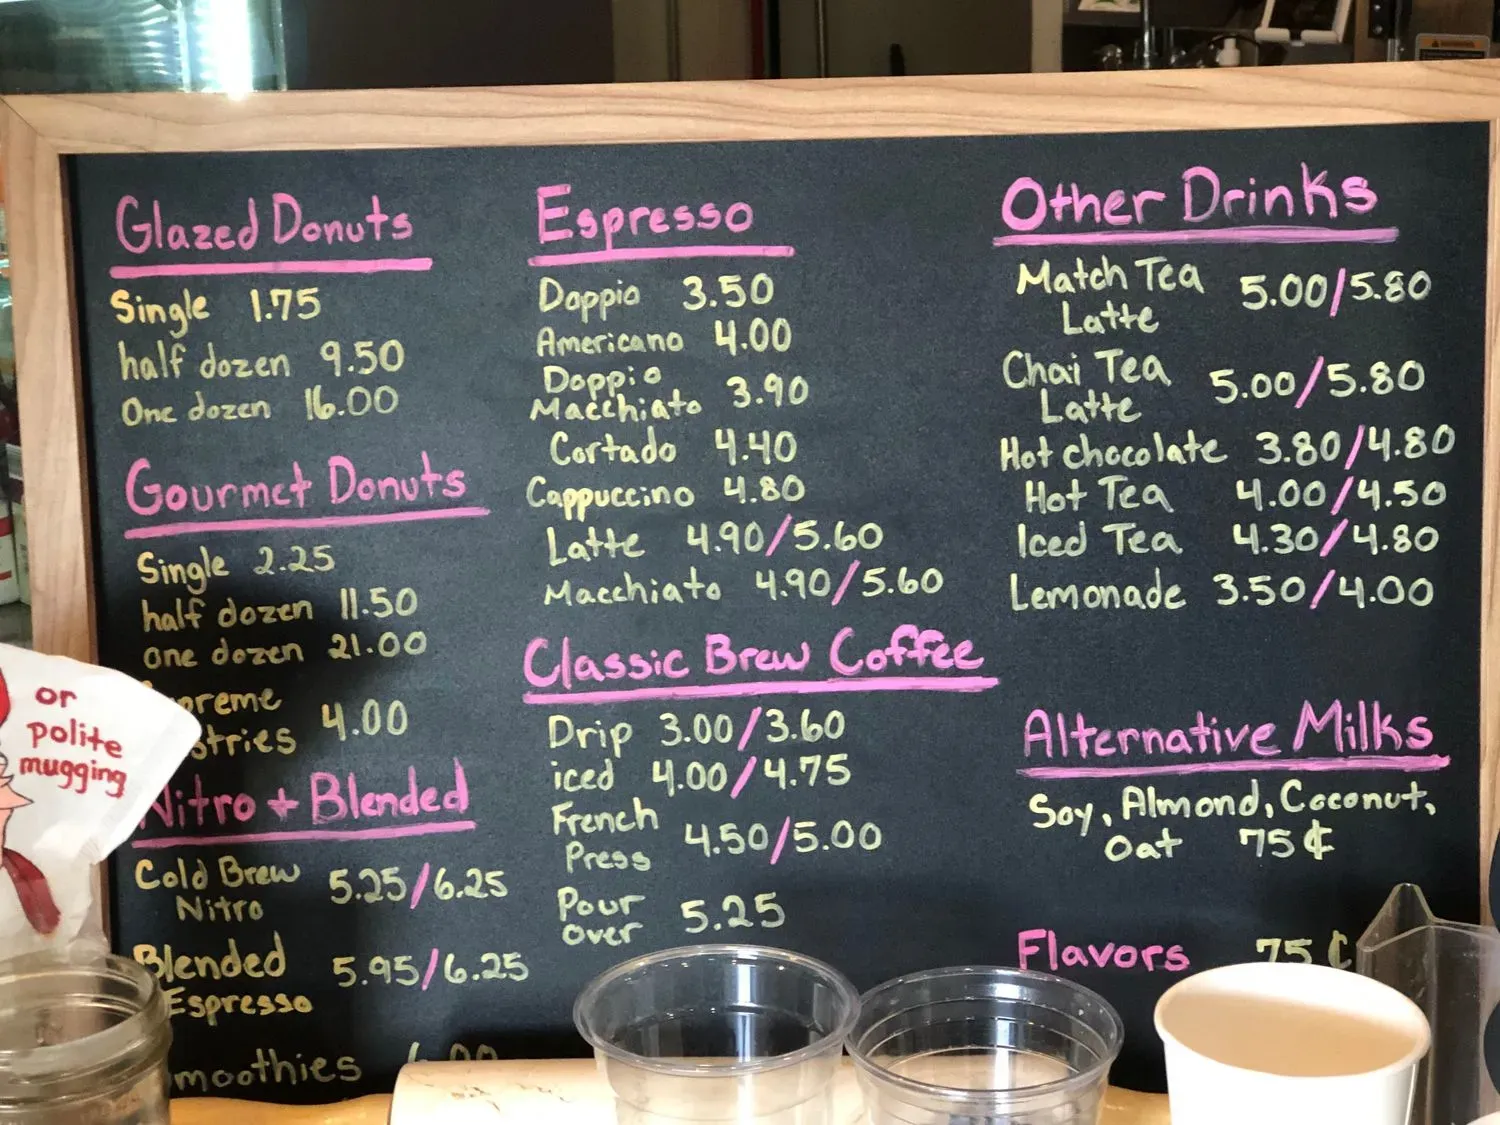 Glazed Donuts
Single 1.75
half dozen 9.50
One dozen 16.00
Gourmet Donuts
Single 2.25
half dozen 11.50
one dozen 21.00
4.00
or
polite
mugging
Nitro + Blended
Cold Brew
Nitro 5.25/6.25
Blended
Espresso 5.95/6.25
Espresso
Doppio 3.50
Americano 4.00
Doppio
Macchiato 3.90
Cortado 4.40
Cappuccino 4.80
Latte 4.90/5.60
Macchiato 4.90/5.60
Classic Brew Coffee
Drip 3.00/3.60
iced 4.00/4.75
French
Press 4.50/5.00
Pour
over 5.25
Other Drinks
Match Tea
Latte 5.00/5.80
Chai Tea
Latte 5.00/5.80
Hot chocolate 3.80/4.80
Hot Tea 4.00/4.50
Iced Tea 4.30/4.80
Lemonade 3.50/4.00
Alternative Milks
Soy, Almond, Coconut,
Oat 75¢
Flavors 75¢